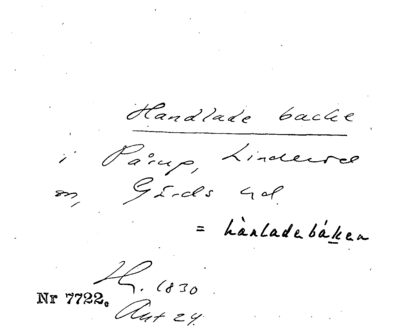 Handlade backe
i Pårup, Linderöd
sn, Gärds hd.
= hànladebáken
H. 1830
Nr 7722.
Ant 24.